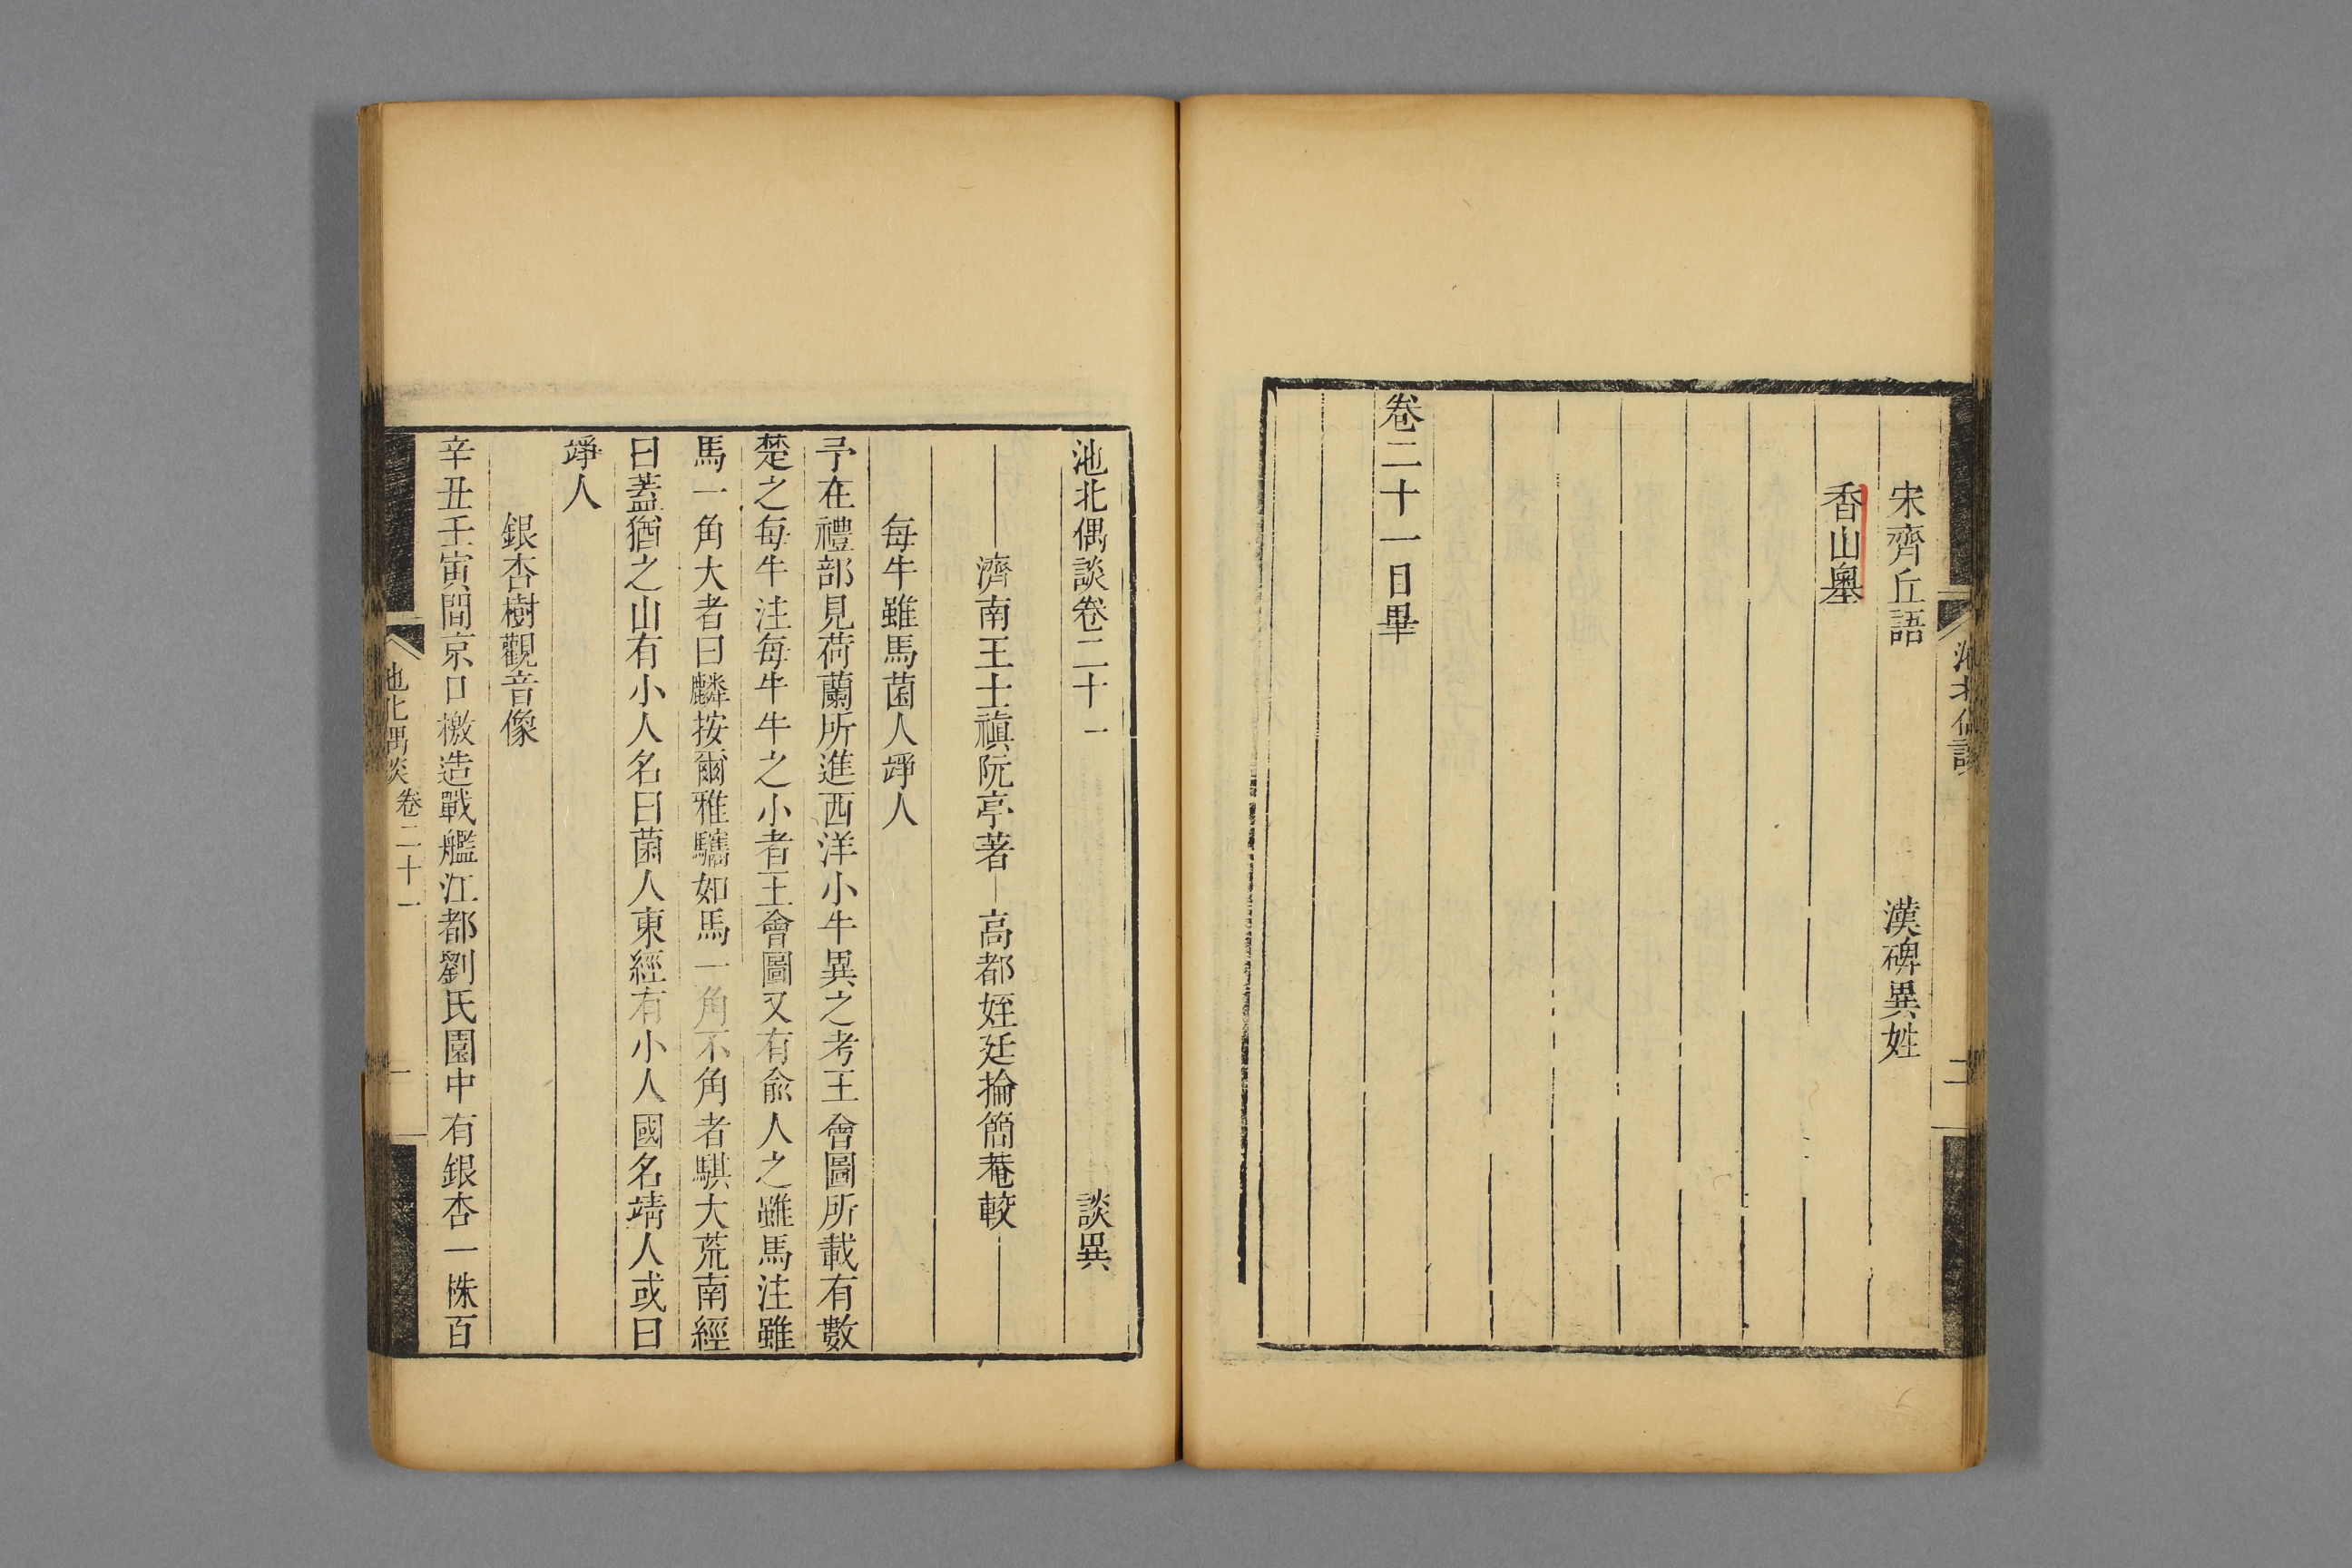 宋齊丘語 漢碑異姓
香山墨
卷二十一目畢
池北偶談
二
池北偶談卷二十一 談異
濟南王士禛阮亭著 高都姪廷掄簡菴較
每牛雖馬菌人竫人
予在禮部見荷蘭所進西洋小牛異之考王會圖所載有數
楚之每牛注每牛牛之小者王會圖又有兪人之雖馬注雖
馬一角大者曰麟按爾雅驨如馬一角不角者騏大荒南經
曰蓋猶之山有小人名曰菌人東經有小人國名靖人或曰
竫人
銀杏樹觀音像
辛丑壬寅間京口檄造戰艦江都劉氏園中有銀杏一株百
池北偶談 卷二十一
一